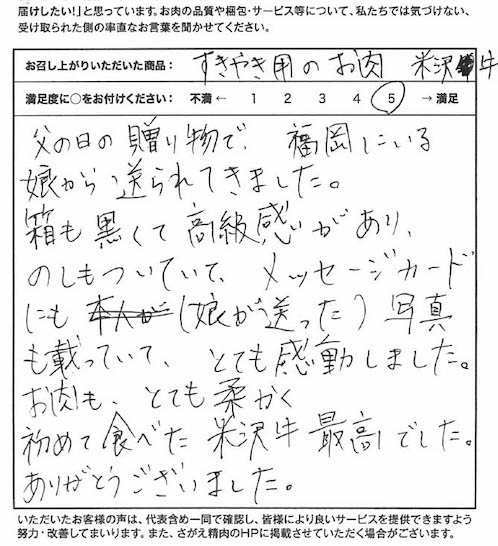 届けしたい!」と思っています。お肉の品質や梱包・サービス等について、私たちでは気づけない、
受け取られた側の率直なお言葉を聞かせてください。
お召し上がりいただいた商品： すきやき用のお肉 米沢牛
満足度に○をお付けください： 不満 ← 1 2 3 4 5 → 満足
父の日の贈り物で、福岡にいる
娘から送られてきました。
箱も黒くて高級感があり、
のしもついていて、メッセージカード
にも 本人が (娘が送った) 写真
も載っていて、とても感動しました。
お肉も、とても柔かく
初めて食べた米沢牛最高でした。
ありがとうございました。
いただいたお客様の声は、代表含め一同で確認し、皆様により良いサービスを提供できますよう
努力・改善してまいります。また、さがえ精肉のHPに掲載させていただく場合がございます。